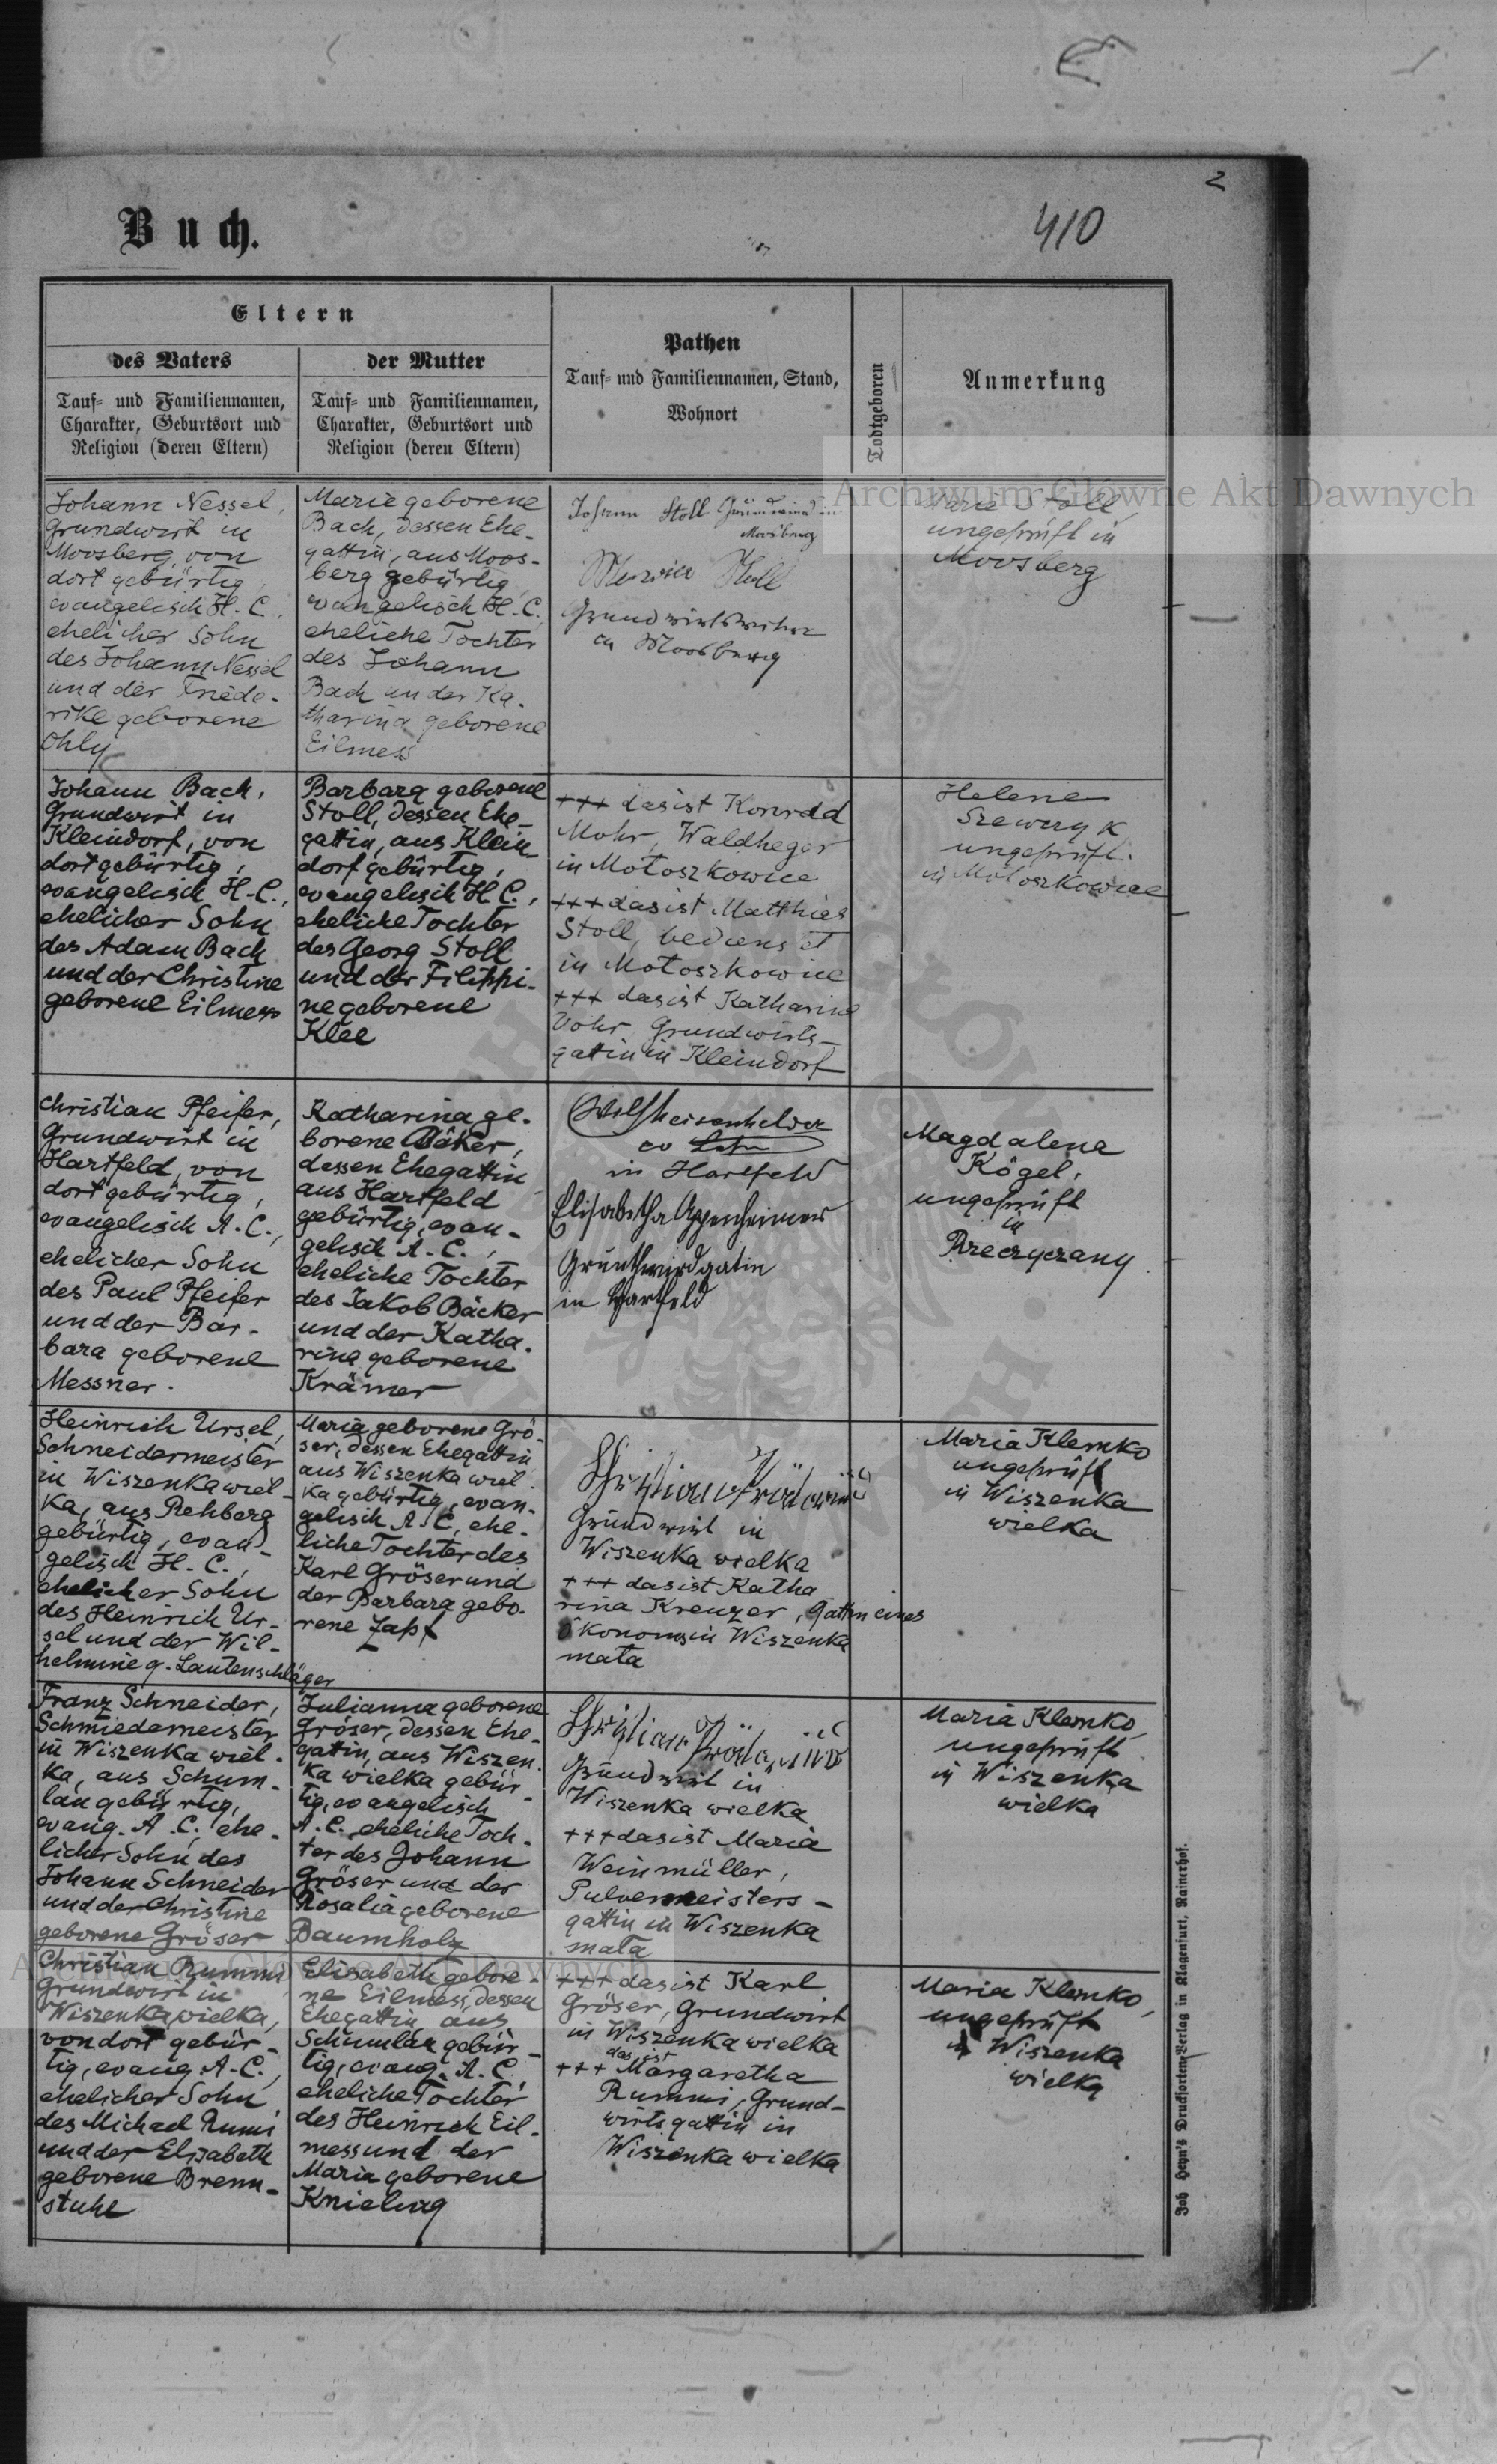 2
Buch.
410
Eltern
des Vaters
der Mutter
Tauf- und Familiennamen,
Charakter, Geburtsort und
Religion (deren Eltern)
Tauf- und Familiennamen,
Charakter, Geburtsort und
Religion (deren Eltern)
Pathen
Tauf- und Familiennamen, Stand,
Wohnort
Todtgeboren
Anmerkung
Archiwum Główne Akt Dawnych
Johann Nessel,
Grundwirt in
Moosberg, von
dort gebürtig,
evangelisch H. C.,
ehelicher Sohn
des Johann Nessel
und der Friede-
rike geborene
Ohly
Marie geborene
Bach, dessen Ehe-
gattin, aus Moos-
berg gebürtig,
evangelisch H. C.,
eheliche Tochter
des Johann
Bach un der Ka-
tharina geborene
Eilmess
Johann Stoll
Moosberg
Stoll
in Moosberg
Marie Stoll,
ungeprüft in
Moosberg
Johann Bach,
Grundwirt in
Kleindorf, von
dort gebürtig,
evangelisch H. C.,
ehelicher Sohn
des Adam Bach
und der Christine
geborene Eilmess
Barbara geborene
Stoll, dessen Ehe-
gattin, aus Klein
dorf gebürtig,
evangelisch H. C.,
eheliche Tochter
des Georg Stoll
und der Filippi-
ne geborene
Klee
+++ das ist Konrad
Mohr, Waldheger
in Mołoszkowice
+++ das ist Matthias
Stoll, bedienstet
in Mołoszkowice
+++ das ist Katharina
Grundwirts-
gattin in Kleindorf
Helene
Szewczyk
ungeprüft.
in Mołoszkowice
Christian Pfeifer,
Grundwirt in
Hartfeld, von
dort gebürtig,
evangelisch A. C.,
ehelicher Sohn
des Paul Pfeifer
und der Bar-
bara geborene
Messner.
Katharina ge-
borene Bäker,
dessen Ehegattin
aus Hartfeld
gebürtig, evan-
gelisch A. C.,
eheliche Tochter
des Jakob Bäcker
und der Katha-
rina geborene
Krämer
in Hartfeld
Elisabetha Appenheimer
Grunthwirdgatin
in Hartfeld
Magdalena
Kögel,
ungeprüft
in
Rzeczyczany
Heinrich Ursel,
Schneidermeister
in Wiszenka wiel-
ka, aus Rehberg
gebürtig, evan-
gelisch H. C.,
ehelicher Sohn
des Heinrich Ur-
sel und der Wil-
helmine g. Lautenschläger
Maria geborene Grö-
ser, dessen Ehegattin
aus Wiszenka wiel-
ka gebürtig, evan-
gelisch A. C., ehe-
liche Tochter des
Karl Gröser und
der Barbara gebo-
rene Zapf
Grundwirt in
Wiszenka wielka
+++ das ist Katha
rina Kreuzer, Gattin eines
Ökonoms in Wiszenka
mała
Maria Klemko
ungeprüft
in Wiszenka
wielka
Franz Schneider,
Schmiedemeister
in Wiszenka wiel-
ka, aus Schum-
lau gebürtig,
evang. A. C., ehe-
licher Sohn des
Johann Schneider
und der Christine
geborene Gröser
Julianna geborene
Gröser, dessen Ehe-
gattin, aus Wiszen-
ka wielka gebür-
tig, evangelisch
A. C., eheliche Toch-
ter des Johann
Gröser und der
Rosalia geborene
Baumholz
Grundwirt in
Wiszenka wielka
+++ das ist Maria
Weinmüller,
Pulvermeisters-
gattin in Wiszenka
mała
Maria Klemko,
ungeprüft
in Wiszenka
wielka
Archiwum Główne Akt Dawnych
Christian Rummi
Grundwirt in
Wiszenka wielka,
von dort gebür-
tig, evang. A. C.,
ehelicher Sohn
des Michael Rumi
und der Elisabeth
geborene Brenn-
stuhl
Elisabeth gebore-
ne Eilmess, dessen
Ehegattin, aus
Schumlau gebür-
tig, evang. A. C.,
eheliche Tochter
des Heinrich Eil-
mess und der
Maria geborene
Knieling
+++ das ist Karl
Gröser, Grundwirt
in Wiszenka wielka
das ist
+++ Margaretha
Rummi, Grund-
wirtsgattin in
Wiszenka wielka
Maria Klemko,
ungeprüft
in Wiszenka
wielka
Joh Heyn's Drucksorten-Verlag in Klagenfurt, Rainerhof.